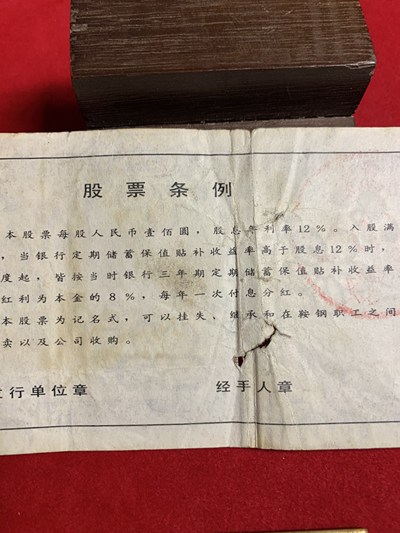 股票条例
本股票每股人民币壹佰圆，股息年利率12％。入股满
，当银行定期储蓄保值贴补收益率高于股息12％时，
度起，皆按当时银行三年期定期储蓄保值贴补收益率
红利为本金的8％，每年一次付息分红。
本股票为记名式，可以挂失、继承和在鞍钢职工之间
卖以及公司收购。
行单位章
经手人章